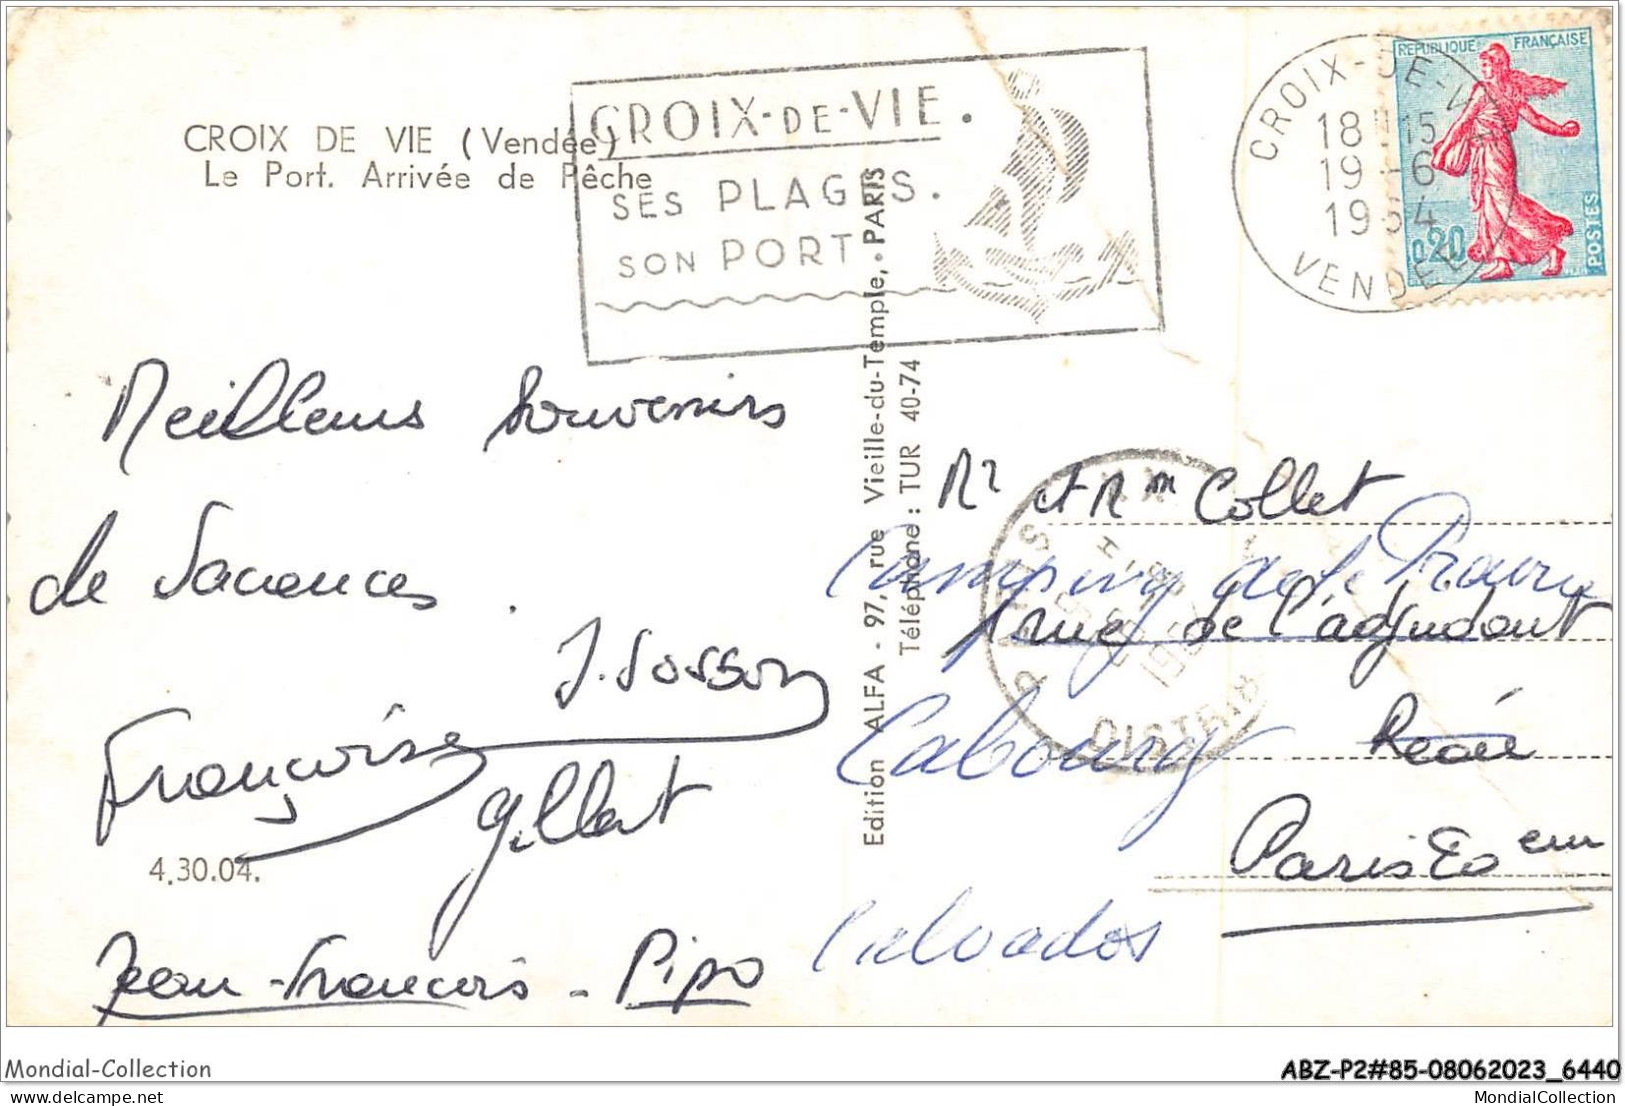 CROIX DE VIE (Vendée)
Le Port. Arrivée de Pêche
CROIX-DE-VIE.
SES PLAGES.
SON PORT.
CROIX-DE-VIE
18 H 15
19 - 6
1964
VENDEE
REPUBLIQUE FRANÇAISE
0,20
POSTES
Meilleurs Souvenirs
de Vacances.
J. Sosson
Françoise
Gilbert
4.30.04.
Jean-François - Pipo
Edition ALFA - 97, rue Vieille-du-Temple, PARIS
Téléphone : TUR 40-74
PARIS XX
DISTRIB
Mr et Mm Collet
Camping de la
1 rue de l'adjudant
Réau
Cabourg
Paris 20 em
Calvados
Mondial-Collection
ABZ-P2#85-08062023_6440
MondialCollection